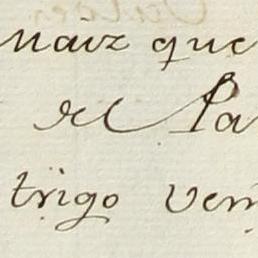 maiz que
el Pa
trigo ven